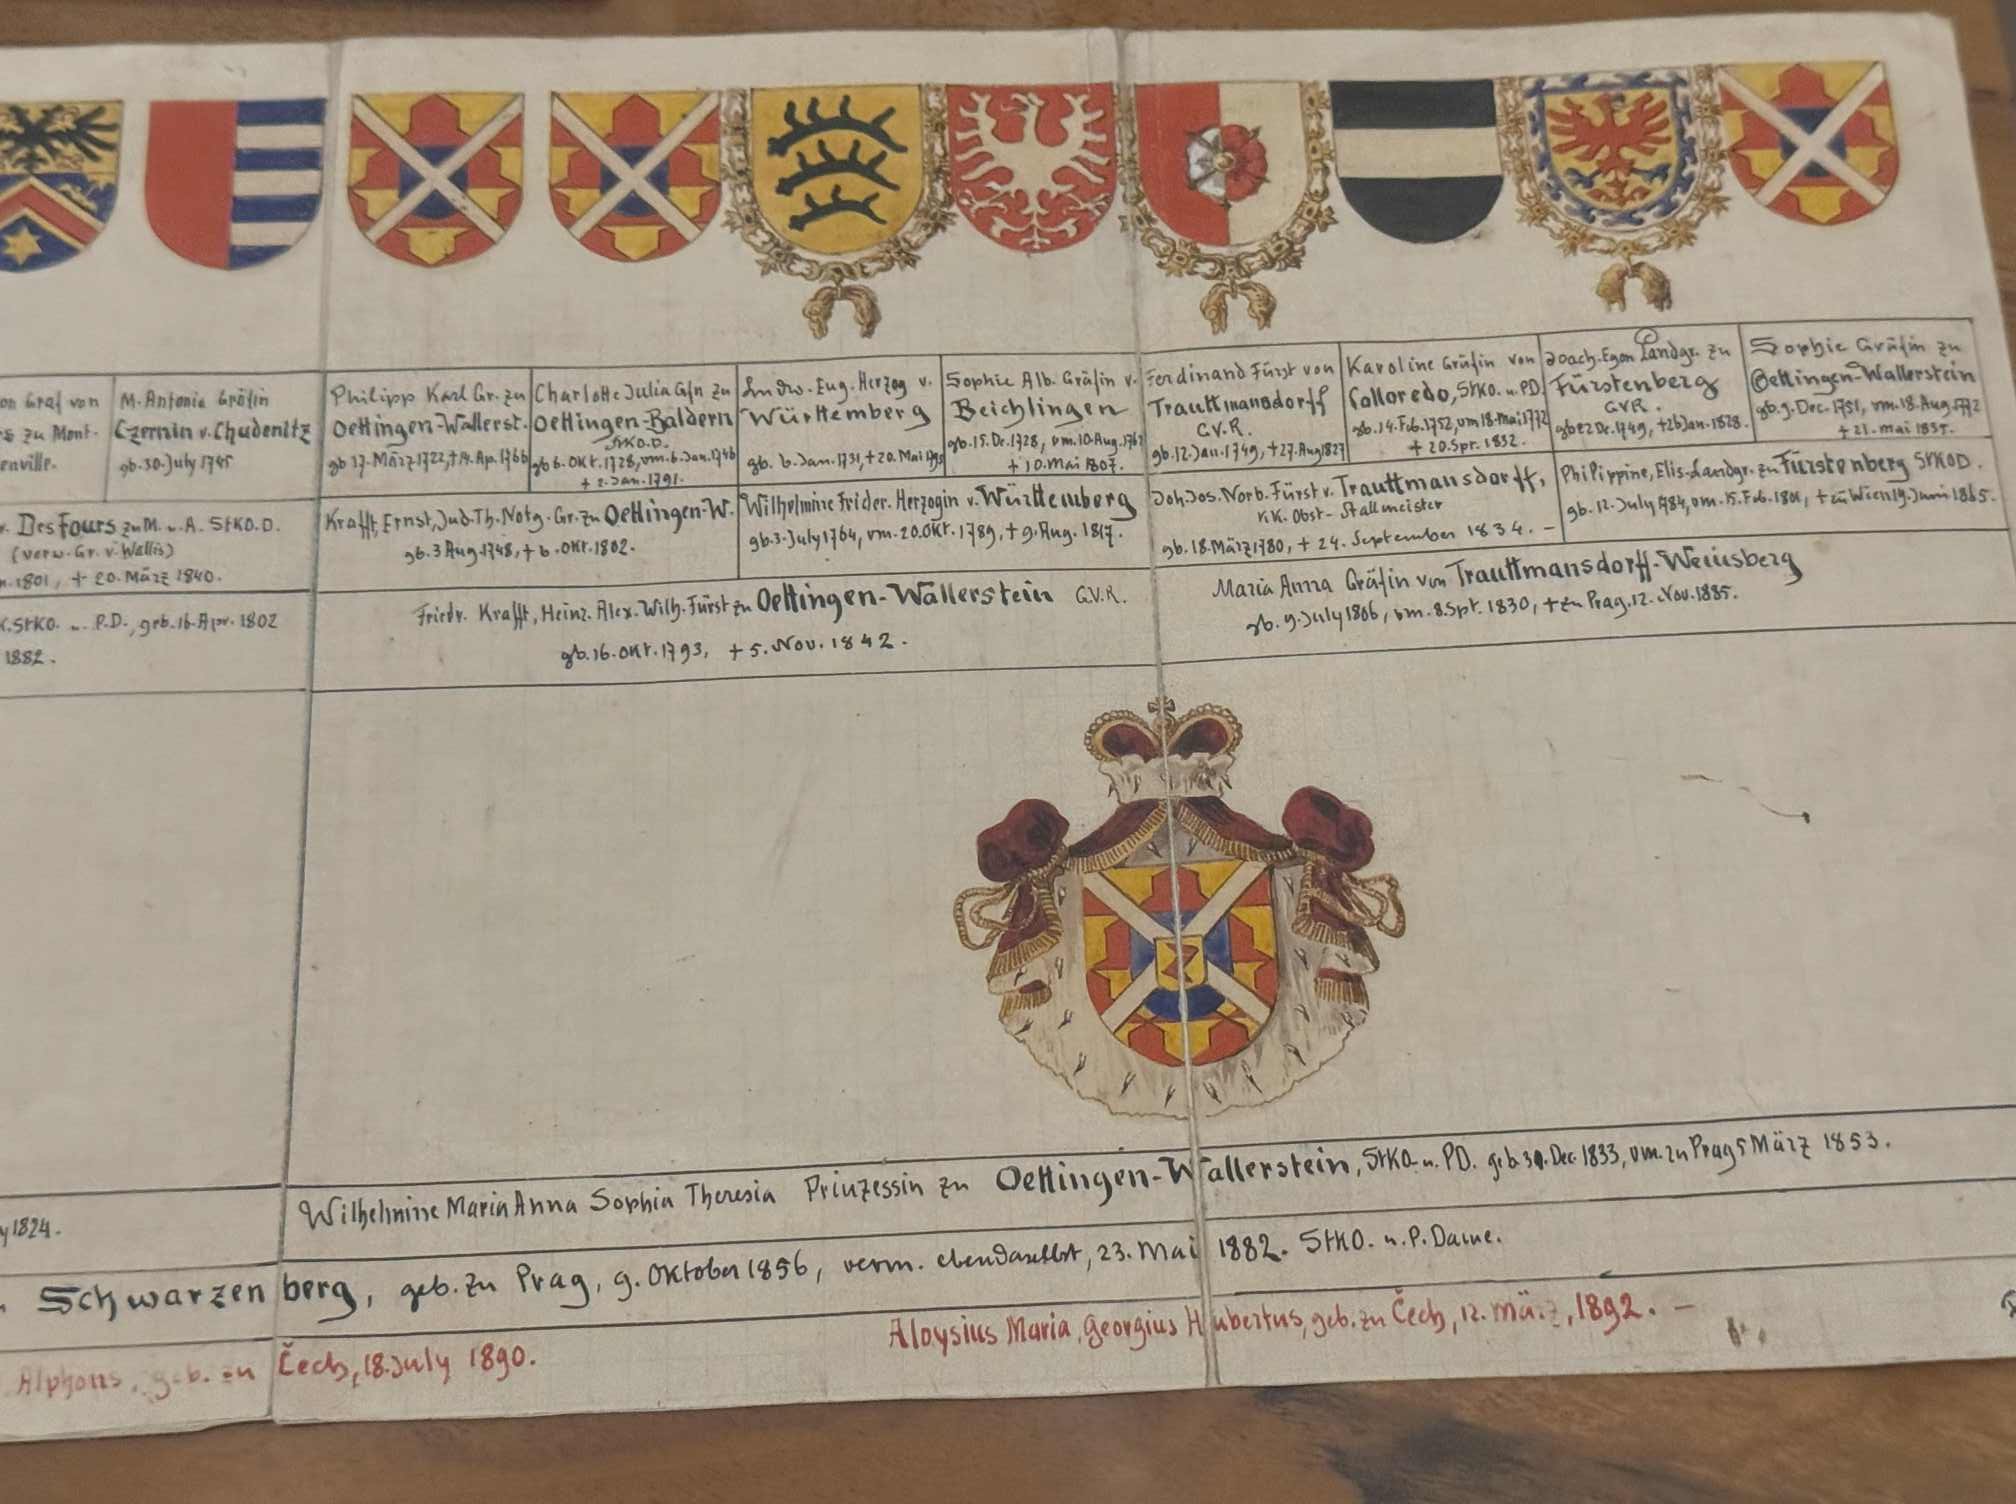 on Graf von
zu Mont-
enville.
M. Antonia Gräfin
Czernin v. Chudenitz
gb. 30. July 1745
Philipp Karl Gr. zu
Oettingen-Wallerst.
gb 17. März 1722, +14. Ap. 1766
Charlotte Julia Gfn zu
Oettingen-Baldern
StKO.D.
gb 6. Okt. 1728, vm. 6. Jan. 1746
+ 2. Jan. 1791.
Ludw. Eug. Herzog v.
Württemberg
gb. 6. Jan. 1731, + 20. Mai 1795
Sophie Alb. Gräfin v.
Beichlingen
gb. 15. Dc. 1728, vm. 10. Aug. 1762
+ 10. Mai 1807.
Ferdinand Fürst von
Trauttmansdorff
G.V.R.
gb. 12. Jan. 1749, +27. Aug 1827
Karoline Gräfin von
Colloredo, StKO. u. PD.
gb. 14. Feb. 1752, vm 18. Mai 1772
+ 20. Spr. 1832.
Joach. Egon Landgr. zu
Fürstenberg
G.V.R.
gb 22 Dc. 1749, +26 Jan. 1828.
Sophie Gräfin zu
Oettingen-Wallerstein
gb. 9. Dec. 1751, vm. 18. Aug. 1772
+ 21. Mai 1835.
v. DesFours zu M. u. A. StKO.D.
(verw. Gr. v. Wallis)
n. 1801, + 20. März 1840.
Krafft, Ernst, Jud. Th. Notg. Gr. zu Oettingen-W.
gb. 3 Aug. 1748, + 6. Okt. 1802.
Wilhelmine Frider. Herzogin v. Württemberg
gb. 3. July 1764, vm. 20. Okt. 1789, + 9. Aug. 1817.
Joh. Jos. Norb. Fürst v. Trauttmansdorff,
K.K. Obst-Stallmeister
gb. 18. März 1780, + 24. September 1834. –
Philippine, Elis. Landgr. zu Fürstenberg StKOD.
gb. 12. July 1784, vm. 15. Feb. 1801, + zu Wien 19. Juni 1865.
K. StKO. u. P.D., geb. 16. Apr. 1802
1882.
Friedr. Krafft, Heinr. Alex. Wilh. Fürst zu Oettingen-Wallerstein G.V.R.
gb. 16. Okt. 1793, + 5. Nov. 1842.
Maria Anna Gräfin von Trauttmansdorff-Weinsberg
gb. 9. July 1806, vm. 8. Spt. 1830, + zu Prag. 12. Nov. 1885.
y 1824.
Wilhelmine Maria Anna Sophia Theresia Prinzessin zu Oettingen-Wallerstein, StKO. u. PD. geb. 30. Dec. 1833, vm. zu Prag 5 März 1853.
Schwarzenberg, geb. zu Prag, 9. Oktober 1856, verm. ebendaselbst, 23. Mai 1882. StKO. u. P. Dame.
Alphons, geb. zu Čech, 18. July 1890.
Aloysius Maria, Georgius Hubertus, geb. zu Čech, 12. März, 1892. –